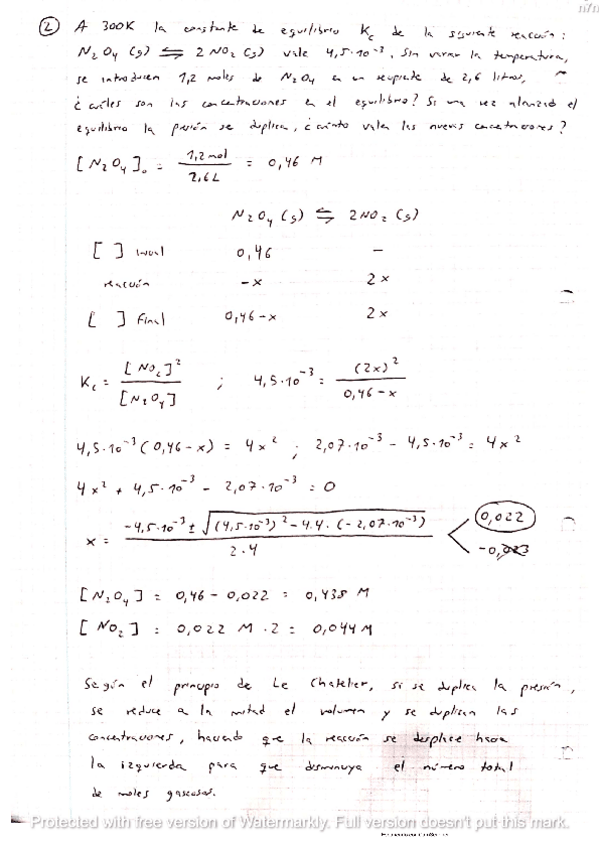 n/n
② A 300K la constante de equilibrio Kc de la siguiente reacción:
N₂O₄ (g) ⇆ 2 NO₂ (g) vale 4,5·10⁻³. Sin variar la temperatura,
se introducen 1,2 moles de N₂O₄ en un recipiente de 2,6 litros,
¿cuáles son las concentraciones en el equilibrio? Si una vez alcanzado el
equilibrio la presión se duplica, ¿cuánto valen las nuevas concentraciones?
[N₂O₄]₀ = 1,2 mol / 2,6 L = 0,46 M
N₂O₄ (g) ⇆ 2NO₂ (g)
[ ] inicial 0,46 -
reacción -x 2x
[ ] final 0,46-x 2x
Kc = [NO₂]² / [N₂O₄] ; 4,5·10⁻³ = (2x)² / 0,46-x
4,5·10⁻³ (0,46-x) = 4x² ; 2,07·10⁻³ - 4,5·10⁻³ = 4x²
4x² + 4,5·10⁻³ - 2,07·10⁻³ = 0
x = -4,5·10⁻³ ± √(4,5·10⁻³)² - 4·4·(-2,07·10⁻³) / 2·4 < 0,022
-0,023
[N₂O₄] = 0,46 - 0,022 = 0,438 M
[NO₂] = 0,022 M · 2 = 0,044 M
Según el principio de Le Chatelier, si se duplica la presión,
se reduce a la mitad el volumen y se duplican las
concentraciones, haciendo que la reacción se desplace hacia
la izquierda para que disminuya el número total
de moles gaseosos.
Protected with free version of Watermarkly. Full version doesn't put this mark.